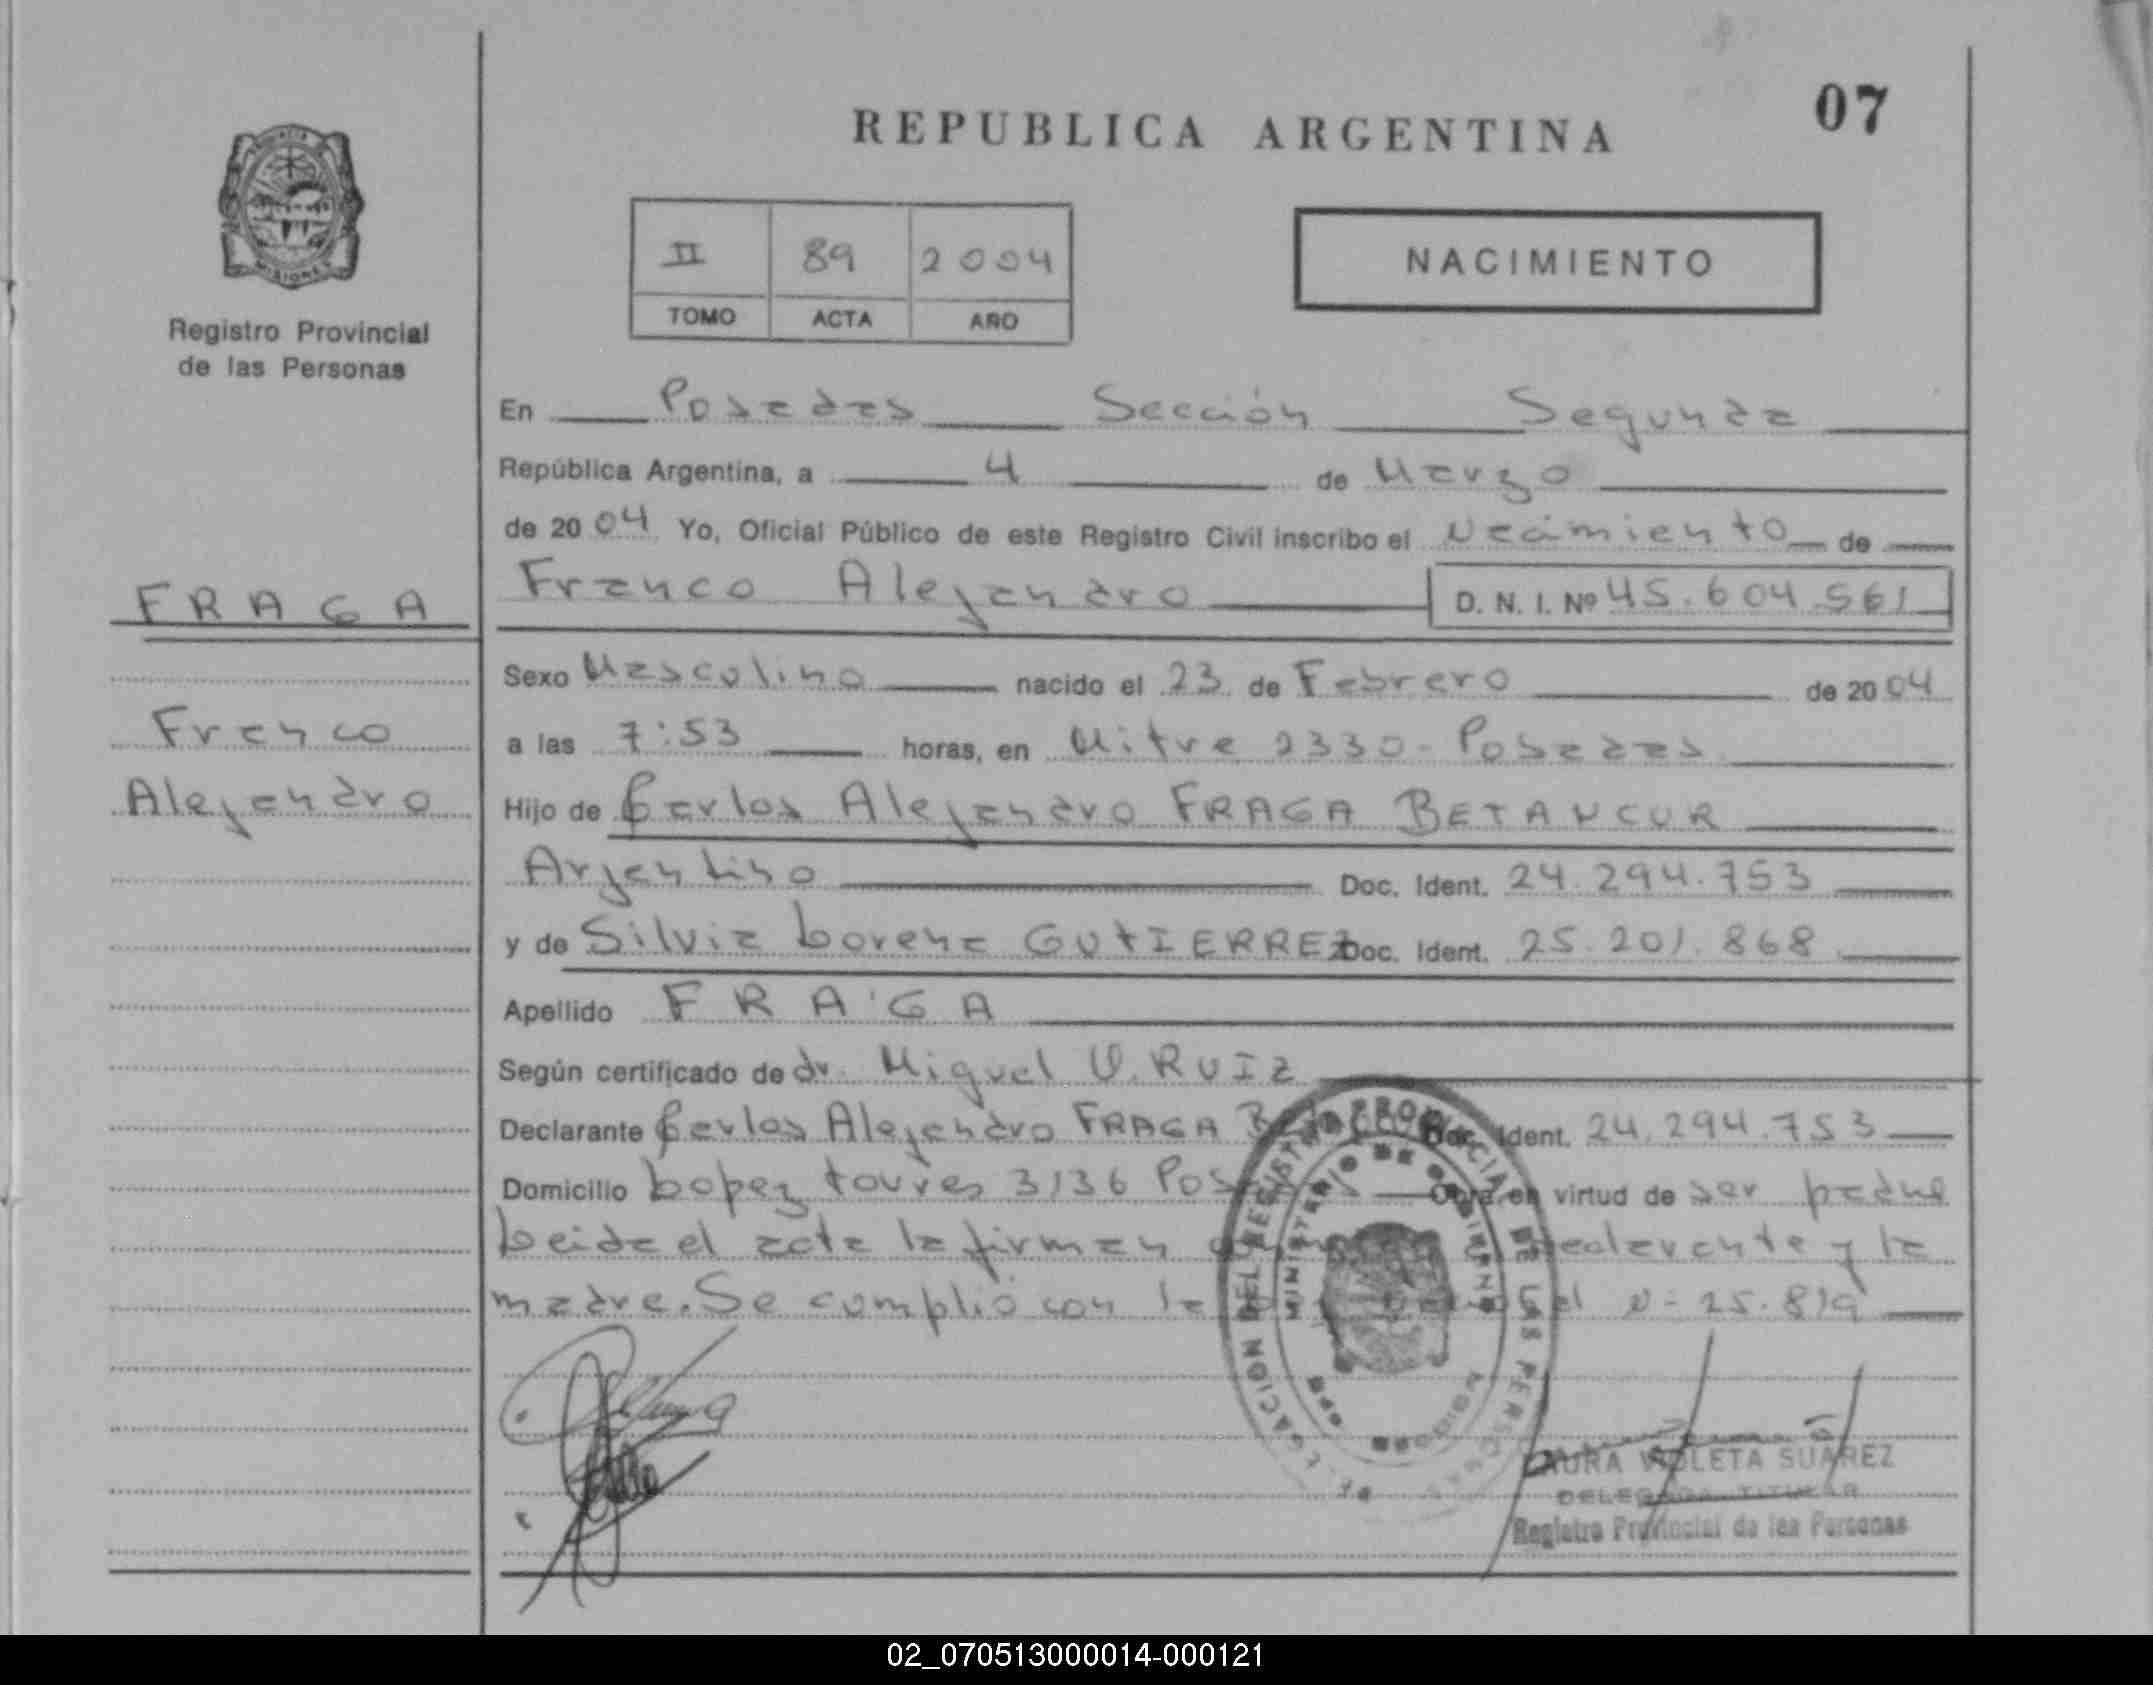 REPUBLICA ARGENTINA
07
MISIONES
Registro Provincial
de las Personas
II 89 2004
TOMO ACTA AÑO
NACIMIENTO
En Posadas Sección Segunda
República Argentina, a 4 de Marzo
de 2004 Yo, Oficial Público de este Registro Civil inscribo el Nacimiento de
FRAGA
Franco Alejandro D. N. I. Nº 45.604.561
Sexo Masculino nacido el 23 de Febrero de 2004
Franco
a las 7:53 horas, en Mitre 2330 - Posadas
Alejandro
Hijo de Carlos Alejandro FRAGA BETANCUR
Argentino Doc. Ident. 24.294.753
y de Silvia Lorena GUTIERREZ Doc. Ident. 25.201.868
Apellido FRAGA
Según certificado de dr. Miguel O. RUIZ
Declarante Carlos Alejandro FRAGA Doc. Ident. 24.294.753
Domicilio Lopez torres 3136 Posadas Obra en virtud de ser padre
Leida el acta la firman declarante y la
madre. Se cumplió con la del N- 25.819
DELEGACION DEL REGISTRO PROVINCIAL DE LAS PERSONAS
MINISTERIO DE GOBIERNO
MISIONES
LAURA VIOLETA SUAREZ
DELEGADA TITULAR
Registro Provincial de las Personas
02_070513000014-000121